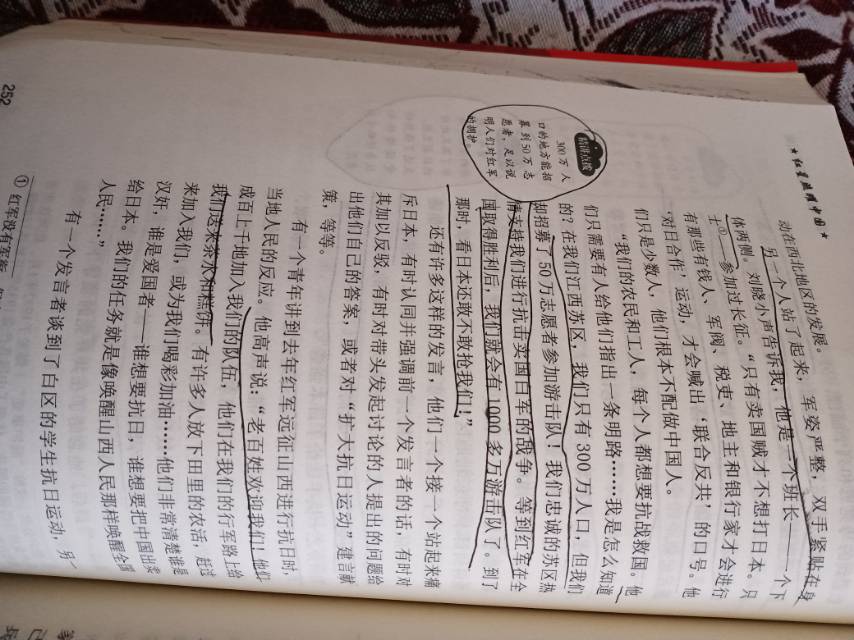 ★红星照耀中国★
动在西北地区的发展。
另一个人站了起来，军姿严整，双手紧贴在身
体两侧。刘晓小声告诉我，他是一个班长——一个下
士①——参加过长征。“只有卖国贼才不想打日本。只
有那些有钱人、军阀、税吏、地主和银行家才会进行
‘对日合作’运动，才会喊出‘联合反共’的口号。他
们只是少数人，他们根本不配做中国人。
“我们的农民和工人，每个人都想要抗战救国。他
们只需要有人给他们指出一条明路……我是怎么知道
的？在我们江西苏区，我们只有300万人口，但我们
却招募了50万志愿者参加游击队！我们忠诚的苏区热
情支持我们进行抗击卖国白军的战争。等到红军在全
国取得胜利后，我们就会有1000多万游击队了。到了
那时，看日本还敢不敢抢我们！”
精讲点拨
300万人
口的地方能招
募到50万志
愿者，足以说
明人们对红军
的拥护。
还有许多这样的发言，他们一个接一个站起来痛
斥日本，有时认同并强调前一个发言者的话，有时对
其加以反驳，有时对带头发起讨论的人提出的问题给
出他们自己的答案，或者对“扩大抗日运动”建言献
策，等等。
有一个青年讲到去年红军远征山西进行抗日时，
当地人民的反应。他高声说：“老百姓欢迎我们！他们
成百上千地加入我们的队伍，他们在我们的行军路上给
我们送来茶水和糕饼。有许多人放下田里的农活，赶过
来加入我们，或为我们喝彩加油……他们非常清楚谁是
汉奸，谁是爱国者——谁想要抗日，谁想要把中国出卖
给日本。我们的任务就是像唤醒山西人民那样唤醒全国
人民……”
有一个发言者谈到了白区的学生抗日运动，另一
① 红军没有军衔
252